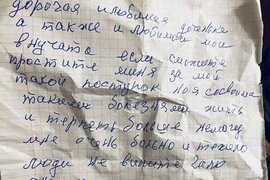 дорогая и любимая доченька
а также и любимаи мои
внучата
простите если сможете
меня за мой
такой поступок но я со своими
такими болезнями жить
и терпеть больше немогу
мне очень больно и тяжело
люди не вините Галю